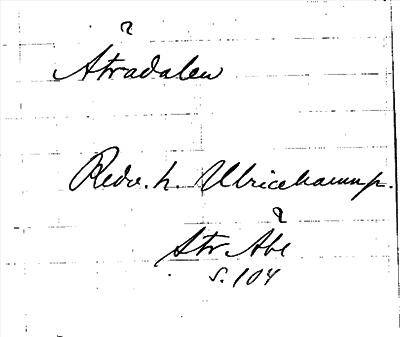 Åtradalen
Redv. h. Ulricehamn p.
Str Åbe
s. 104